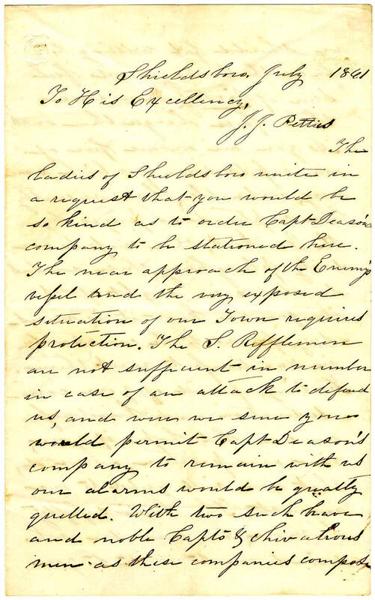 Shieldsboro, July 1861
To His Excellency,
J. J. Pettus
The
Ladies of Shieldsboro unite in
a request that you would be
so kind as to order Capt Deason's
company to be stationed here.
The near approach of the Enemy's
vessel and the very exposed
situation of our Town requires
protection. The S. Rifflemen
are not suffucent in number
in case of an attack to defend
us, and were we sure you
would permit Capt Deason's
company to remain with us
our alarms would be greatly
quelled. With two such brave
and noble Capts & chivalrous
men as these companies compose